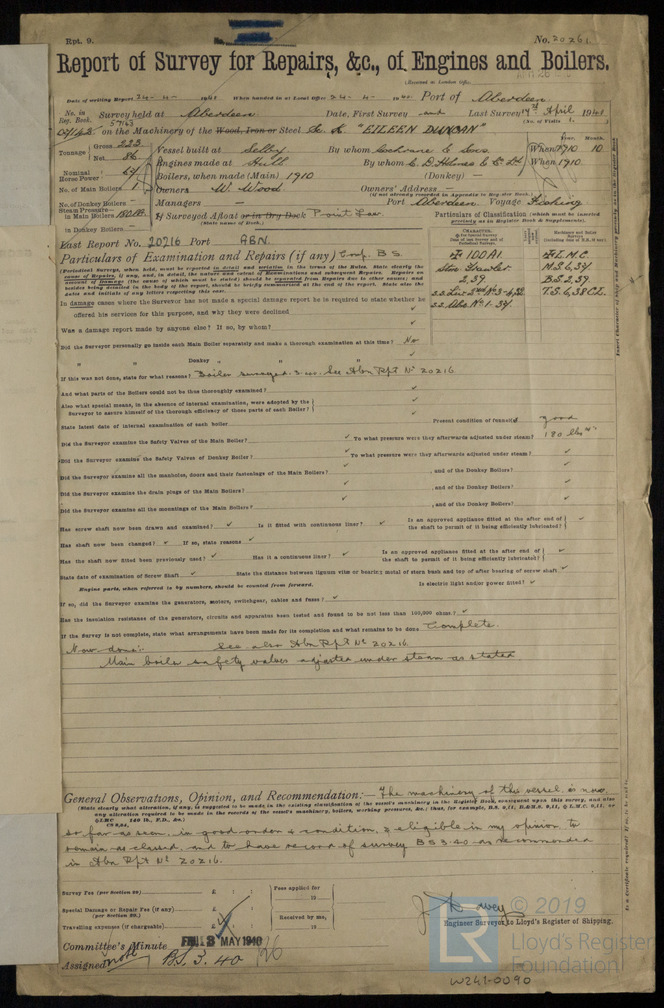 Rpt. 9.
No. 20261
Report of Survey for Repairs, &c., of Engines and Boilers.
(Received at London Office
Date of writing Report 24-4-1940 When handed in at Local Office 24.4.1940 Port of Aberdeen
No. in Reg. Book. Survey held at Aberdeen Date, First Survey and Last Survey 19th April 1940
(No. of Visits 1.)
57163
on the Machinery of the Wood, Iron or Steel Sc. K. "EILEEN DUNCAN"
Tonnage Gross 223 Net 86
Vessel built at Selby By whom Cochrane & Sons. When 1910 10
Engines made at Hull By whom C. D. Holmes & Co Ld When 1910
Nominal Horse Power 64
Boilers, when made (Main) 1910 (Donkey) —
No. of Main Boilers 1
Owners W. Wood Owners' Address —
(if not already recorded in Appendix to Register Book.)
No. of Donkey Boilers —
Managers — Port Aberdeen Voyage Fishing
Steam Pressure in Main Boilers 180 lbs
in Donkey Boilers —
If Surveyed Afloat or in Dry Dock Point Law
(State name of Dock.)
Last Report No. 20216 Port ABN.
Particulars of Classification (which must be inserted precisely as in Register Book & Supplements).
✠ 100A1
Stm Trawler
2,39
✠ L.M.C.
M.S. 6,34
B.S. 2,39
T.S. 6,38 CL.
Particulars of Examination and Repairs (if any) Comp. B S.
In damage cases where the Surveyor has not made a special damage report he is required to state whether he
offered his services for this purpose, and why they were declined
Was a damage report made by anyone else? If so, by whom?
Did the Surveyor personally go inside each Main Boiler separately and make a thorough examination at this time? No
" " Donkey " " "
If this was not done, state for what reasons? Boiler surveyed 3.40. See Abn Rpt No 20216
And what parts of the Boilers could not be thus thoroughly examined?
Also what special means, in the absence of internal examination, were adopted by the
Surveyor to assure himself of the thorough efficiency of those parts of each Boiler?
State latest date of internal examination of each boiler Present condition of funnel(s) good
Did the Surveyor examine the Safety Valves of the Main Boiler? To what pressure were they afterwards adjusted under steam? 180 lbs "
Did the Surveyor examine the Safety Valves of Donkey Boiler? To what pressure were they afterwards adjusted under steam?
Did the Surveyor examine all the manholes, doors and their fastenings of the Main Boilers? , and of the Donkey Boilers?
Did the Surveyor examine the drain plugs of the Main Boilers? , and of the Donkey Boilers?
Did the Surveyor examine all the mountings of the Main Boilers? , and of the Donkey Boilers?
Has screw shaft now been drawn and examined? Is it fitted with continuous liner? Is an approved appliance fitted at the after end of
the shaft to permit of it being efficiently lubricated?
Has shaft now been changed? If so, state reasons
Has the shaft now fitted been previously used? Has it a continuous liner? Is an approved appliance fitted at the after end of
the shaft to permit of it being efficiently lubricated?
State date of examination of Screw Shaft State the distance between lignum vitæ or bearing metal of stern bush and top of after bearing of screw shaft
Engine parts, when referred to by numbers, should be counted from forward. Is electric light and/or power fitted?
If so, did the Surveyor examine the generators, motors, switchgear, cables and fuses?
Has the insulation resistance of the generators, circuits and apparatus been tested and found to be not less than 100,000 ohms?
If the Survey is not complete, state what arrangements have been made for its completion and what remains to be done Complete.
Now done:- See also Abn Rpt No 20216.
Main boiler safety valves adjusted under steam as stated
General Observations, Opinion, and Recommendation:— The machinery of this vessel is now
so far as seen, in good order & condition, & eligible in my opinion to
remain as classed, and to have record of survey BS 3.40 as recommended
in Abn Rpt No 20216.
Survey Fee (per Section 29) £ : :
Fees applied for
19
Special Damage or Repair Fee (if any) £ : :
(per Section 29.)
Received by me,
19
Travelling expenses (if chargeable) £ : :
Engineer Surveyor to Lloyd's Register of Shipping.
Committee's Minute FRI. 3 MAY 1940
Assigned B.S. 3.40
© 2019
LR
Lloyd's Register
Foundation
W241-0090